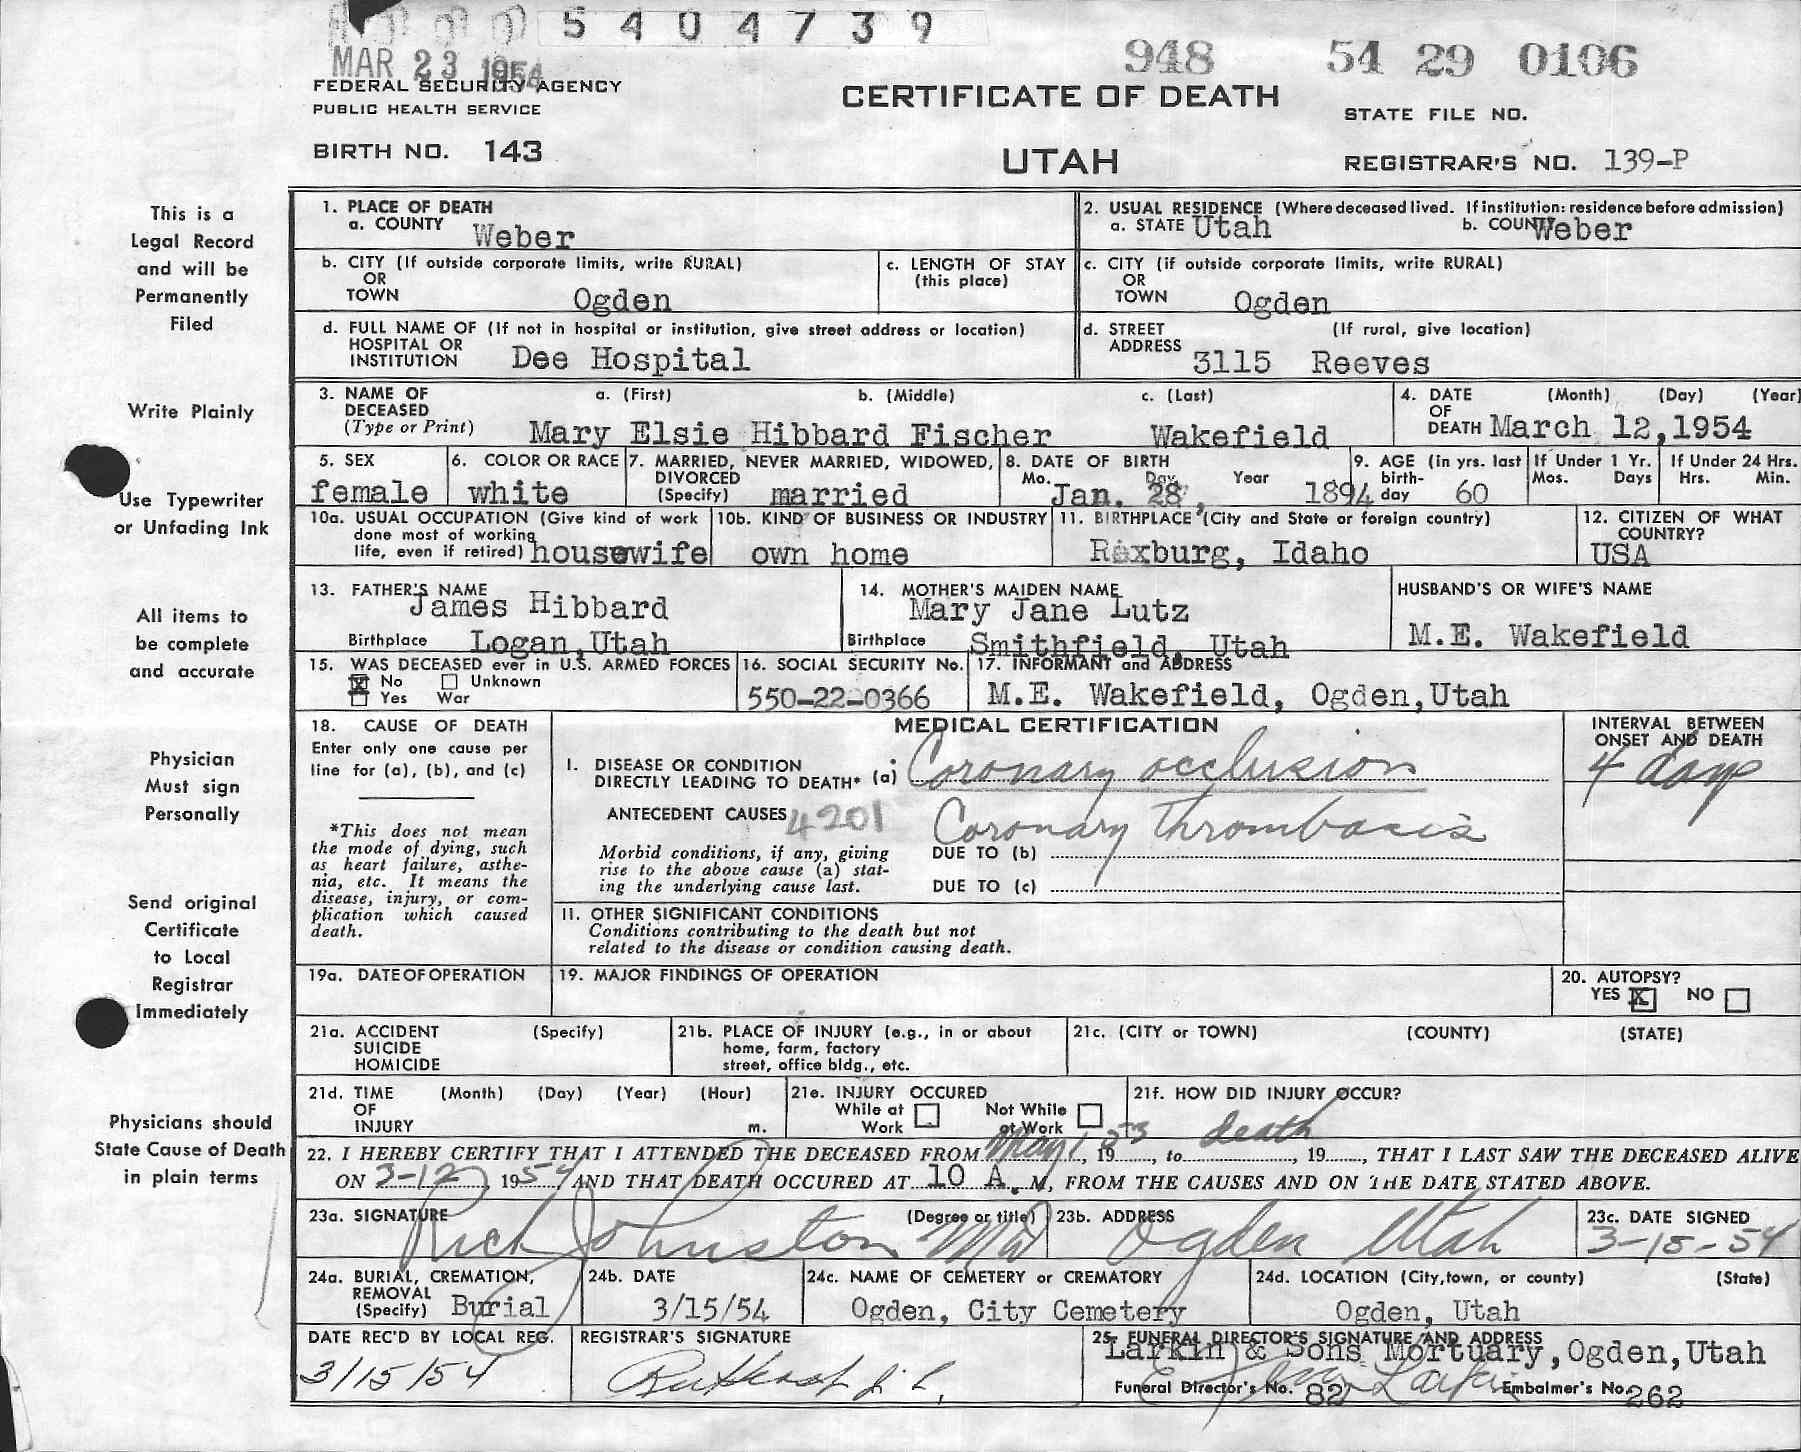 5 4 0 4 7 3 9
MAR 23 1954
948 54 29 0106
FEDERAL SECURITY AGENCY
PUBLIC HEALTH SERVICE
CERTIFICATE OF DEATH
STATE FILE NO.
BIRTH NO. 143
UTAH
REGISTRAR'S NO. 139-P
This is a
Legal Record
and will be
Permanently
Filed
Write Plainly
Use Typewriter
or Unfading Ink
All items to
be complete
and accurate
Physician
Must sign
Personally
Send original
Certificate
to Local
Registrar
Immediately
Physicians should
State Cause of Death
in plain terms
1. PLACE OF DEATH
a. COUNTY Weber
2. USUAL RESIDENCE (Where deceased lived. If institution: residence before admission)
a. STATE Utah b. COUNTY Weber
b. CITY (If outside corporate limits, write RURAL)
OR
TOWN Ogden
c. LENGTH OF STAY
(this place)
c. CITY (if outside corporate limits, write RURAL)
OR
TOWN Ogden
d. FULL NAME OF (If not in hospital or institution, give street address or location)
HOSPITAL OR
INSTITUTION Dee Hospital
d. STREET (If rural, give location)
ADDRESS 3115 Reeves
3. NAME OF a. (First) b. (Middle) c. (Last)
DECEASED
(Type or Print) Mary Elsie Hibbard Fischer Wakefield
4. DATE (Month) (Day) (Year)
OF
DEATH March 12,1954
5. SEX
female
6. COLOR OR RACE
white
7. MARRIED, NEVER MARRIED, WIDOWED,
DIVORCED
(Specify) married
8. DATE OF BIRTH
Mo. Day Year
Jan. 28, 1894
9. AGE (in yrs. last
birth-
day 60
If Under 1 Yr.
Mos. Days
If Under 24 Hrs.
Hrs. Min.
10a. USUAL OCCUPATION (Give kind of work
done most of working
life, even if retired) housewife
10b. KIND OF BUSINESS OR INDUSTRY
own home
11. BIRTHPLACE (City and State or foreign country)
Rexburg, Idaho
12. CITIZEN OF WHAT
COUNTRY?
USA
13. FATHER'S NAME
James Hibbard
Birthplace Logan,Utah
14. MOTHER'S MAIDEN NAME
Mary Jane Lutz
Birthplace Smithfield, Utah
HUSBAND'S OR WIFE'S NAME
M.E. Wakefield
15. WAS DECEASED ever in U.S. ARMED FORCES
X No Unknown
Yes War
16. SOCIAL SECURITY No.
550-22-0366
17. INFORMANT and ADDRESS
M.E. Wakefield, Ogden,Utah
18. CAUSE OF DEATH
Enter only one cause per
line for (a), (b), and (c)
*This does not mean
the mode of dying, such
as heart failure, asthe-
nia, etc. It means the
disease, injury, or com-
plication which caused
death.
MEDICAL CERTIFICATION
I. DISEASE OR CONDITION
DIRECTLY LEADING TO DEATH* (a) Coronary occlusion
ANTECEDENT CAUSES 4201
Coronary Thrombosis
Morbid conditions, if any, giving
rise to the above cause (a) stat-
ing the underlying cause last.
DUE TO (b)
DUE TO (c)
INTERVAL BETWEEN
ONSET AND DEATH
4 days
II. OTHER SIGNIFICANT CONDITIONS
Conditions contributing to the death but not
related to the disease or condition causing death.
19a. DATE OF OPERATION
19. MAJOR FINDINGS OF OPERATION
20. AUTOPSY?
YES X NO
21a. ACCIDENT (Specify)
SUICIDE
HOMICIDE
21b. PLACE OF INJURY (e.g., in or about
home, farm, factory
street, office bldg., etc.
21c. (CITY or TOWN) (COUNTY) (STATE)
21d. TIME (Month) (Day) (Year) (Hour)
OF
INJURY m.
21e. INJURY OCCURED
While at Not While
Work at Work
21f. HOW DID INJURY OCCUR?
22. I HEREBY CERTIFY THAT I ATTENDED THE DECEASED FROM May 1, 19 53, to death, 19, THAT I LAST SAW THE DECEASED ALIVE
ON 3-12, 1954 AND THAT DEATH OCCURED AT 10 A. M, FROM THE CAUSES AND ON THE DATE STATED ABOVE.
23a. SIGNATURE (Degree or title)
Rich Johnston MD
23b. ADDRESS
Ogden Utah
23c. DATE SIGNED
3-15-54
24a. BURIAL, CREMATION,
REMOVAL
(Specify) Burial
24b. DATE
3/15/54
24c. NAME OF CEMETERY or CREMATORY
Ogden, City Cemetery
24d. LOCATION (City,town, or county) (State)
Ogden, Utah
DATE REC'D BY LOCAL REG.
3/15/54
REGISTRAR'S SIGNATURE
25. FUNERAL DIRECTOR'S SIGNATURE AND ADDRESS
Larkin & Sons Mortuary,Ogden,Utah
Larkin
Funeral Director's No. 82 Embalmer's No. 262